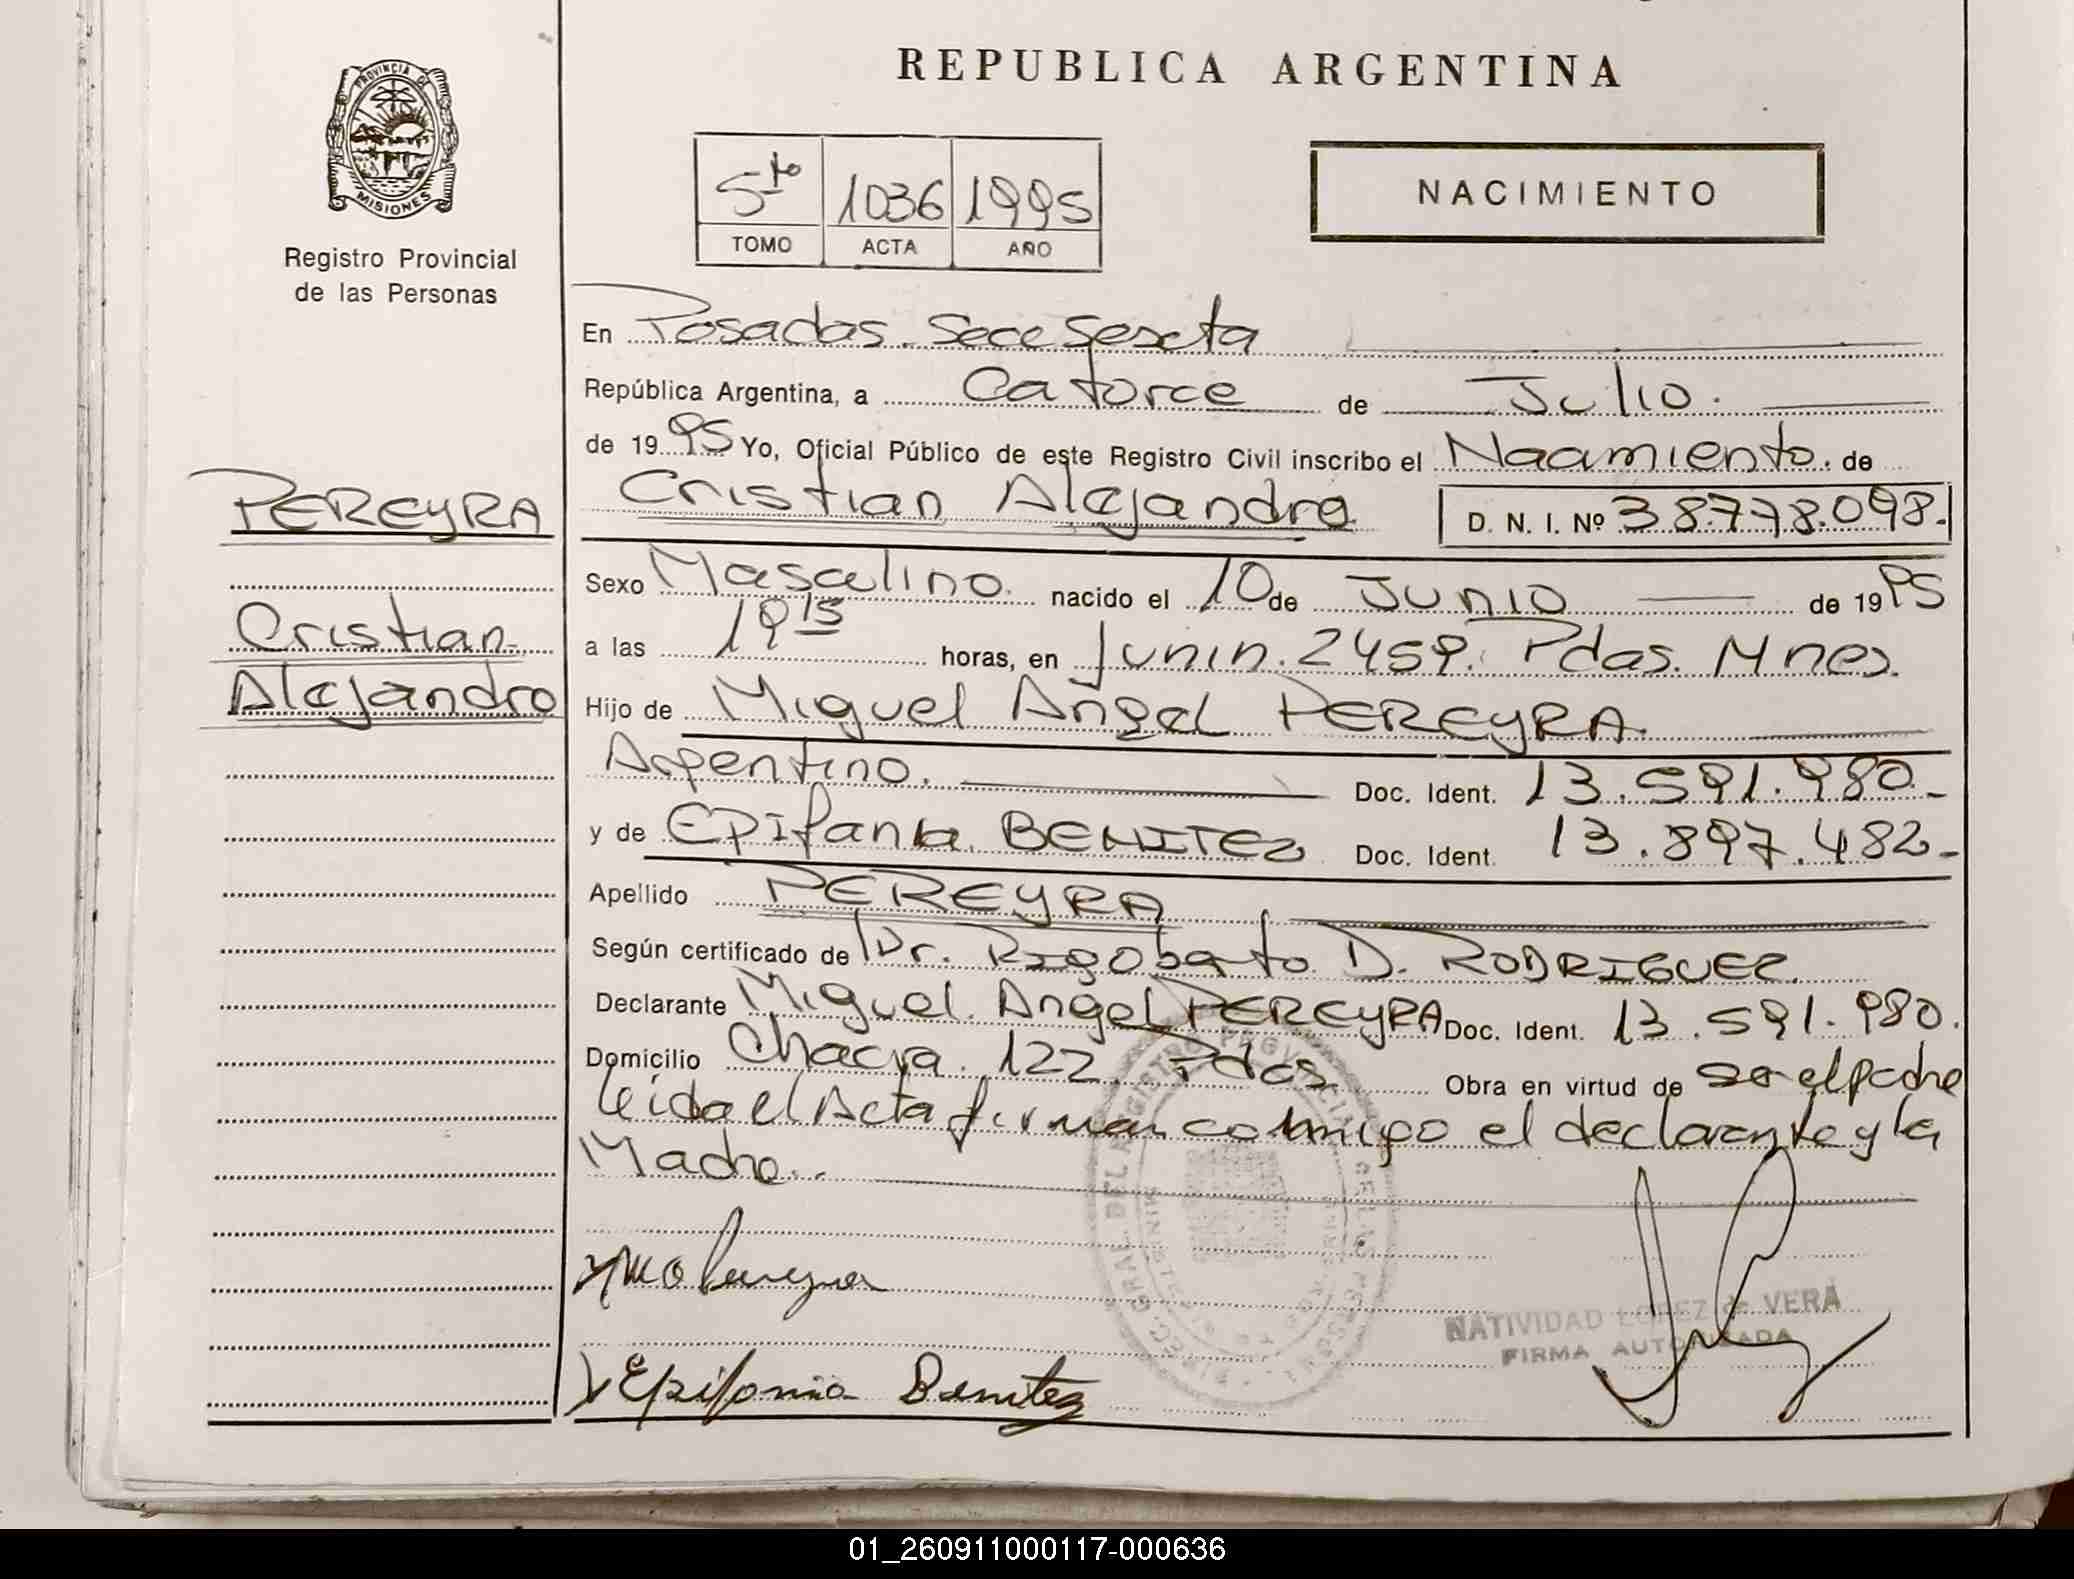 REPUBLICA ARGENTINA
PROVINCIA DE
MISIONES
Registro Provincial
de las Personas
5to 1036 1995
TOMO ACTA AÑO
NACIMIENTO
En Posadas. Secc Sexta
República Argentina, a Catorce de Julio.
de 1995 Yo, Oficial Público de este Registro Civil inscribo el Nacimiento. de
PEREYRA
Cristian
Alejandro
Cristian Alejandro D. N. I. Nº 38.778.098.
Sexo Masculino. nacido el 10 de JUNIO de 1995
a las 19 15 horas, en Junin. 2459. Pdas. Mnes.
Hijo de Miguel Angel PEREYRA.
Argentino. Doc. Ident. 13.591.980.-
y de Epifania BENITEZ Doc. Ident. 13.897.482-
Apellido PEREYRA
Según certificado de Dr. Rigoberto D. RODRIGUEZ.
Declarante Miguel. Angel PEREYRA Doc. Ident. 13.591.980.
Domicilio Chacra 122 Pdas Obra en virtud de ser el padre
leída el Acta firman conmigo el declarante y la
Madre..
Pereyra
Epifania Benitez
NATIVIDAD LOPEZ de VERA
FIRMA AUTORIZADA
01_260911000117-000636